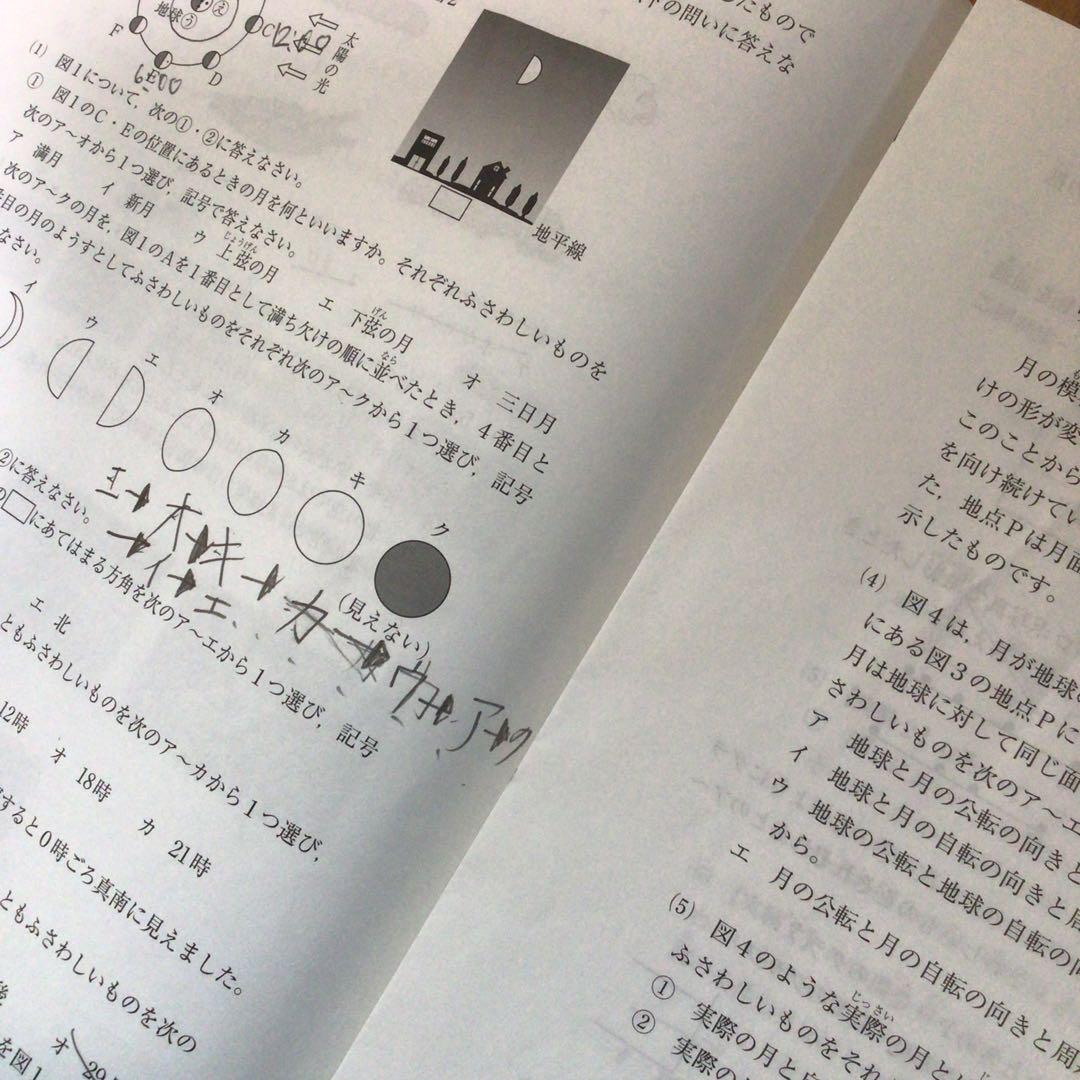 したもので
下の問いに答えな
太陽の光
地球
う
え
C
12:00
F
E
D
6:00
地平線
(1) 図1について,次の①・②に答えなさい。
① 図1のC・Eの位置にあるときの月を何といいますか。それぞれふさわしいものを
次のア〜オから1つ選び,記号で答えなさい。
ア 満月 イ 新月 ウ 上弦の月 エ 下弦の月 オ 三日月
じょうげん
げん
次のア〜クの月を,図1のAを1番目として満ち欠けの順に並べたとき,4番目と
なら
番目の月のようすとしてふさわしいものをそれぞれ次のア〜クから1つ選び,記号
なさい。
イ ウ エ オ カ キ ク
(見えない)
エ→オ→キ→カ→ウ→ア→ク
→イ→エ
②に答えなさい。
の□にあてはまる方角を次のア〜エから1つ選び,記号
エ 北
ともふさわしいものを次のア〜カから1つ選び,
12時 オ 18時 カ 21時
すると0時ごろ真南に見えました。
ともふさわしいものを次の
後
オ 29
を図1
月の模
けの形が変
このことから
を向け続けてい
た,地点Pは月面
示したものです。
(4) 図4は,月が地球
にある図3の地点Pに
月は地球に対して同じ面
さわしいものを次のア〜エ
ア 地球と月の公転の向きと
イ 地球と月の自転の向きと周
ウ 地球の公転と地球の自転の向
から。
エ 月の公転と月の自転の向きと周
(5) 図4のような実際の月と
じっさい
ふさわしいものをそれ
① 実際の月と自
② 実際